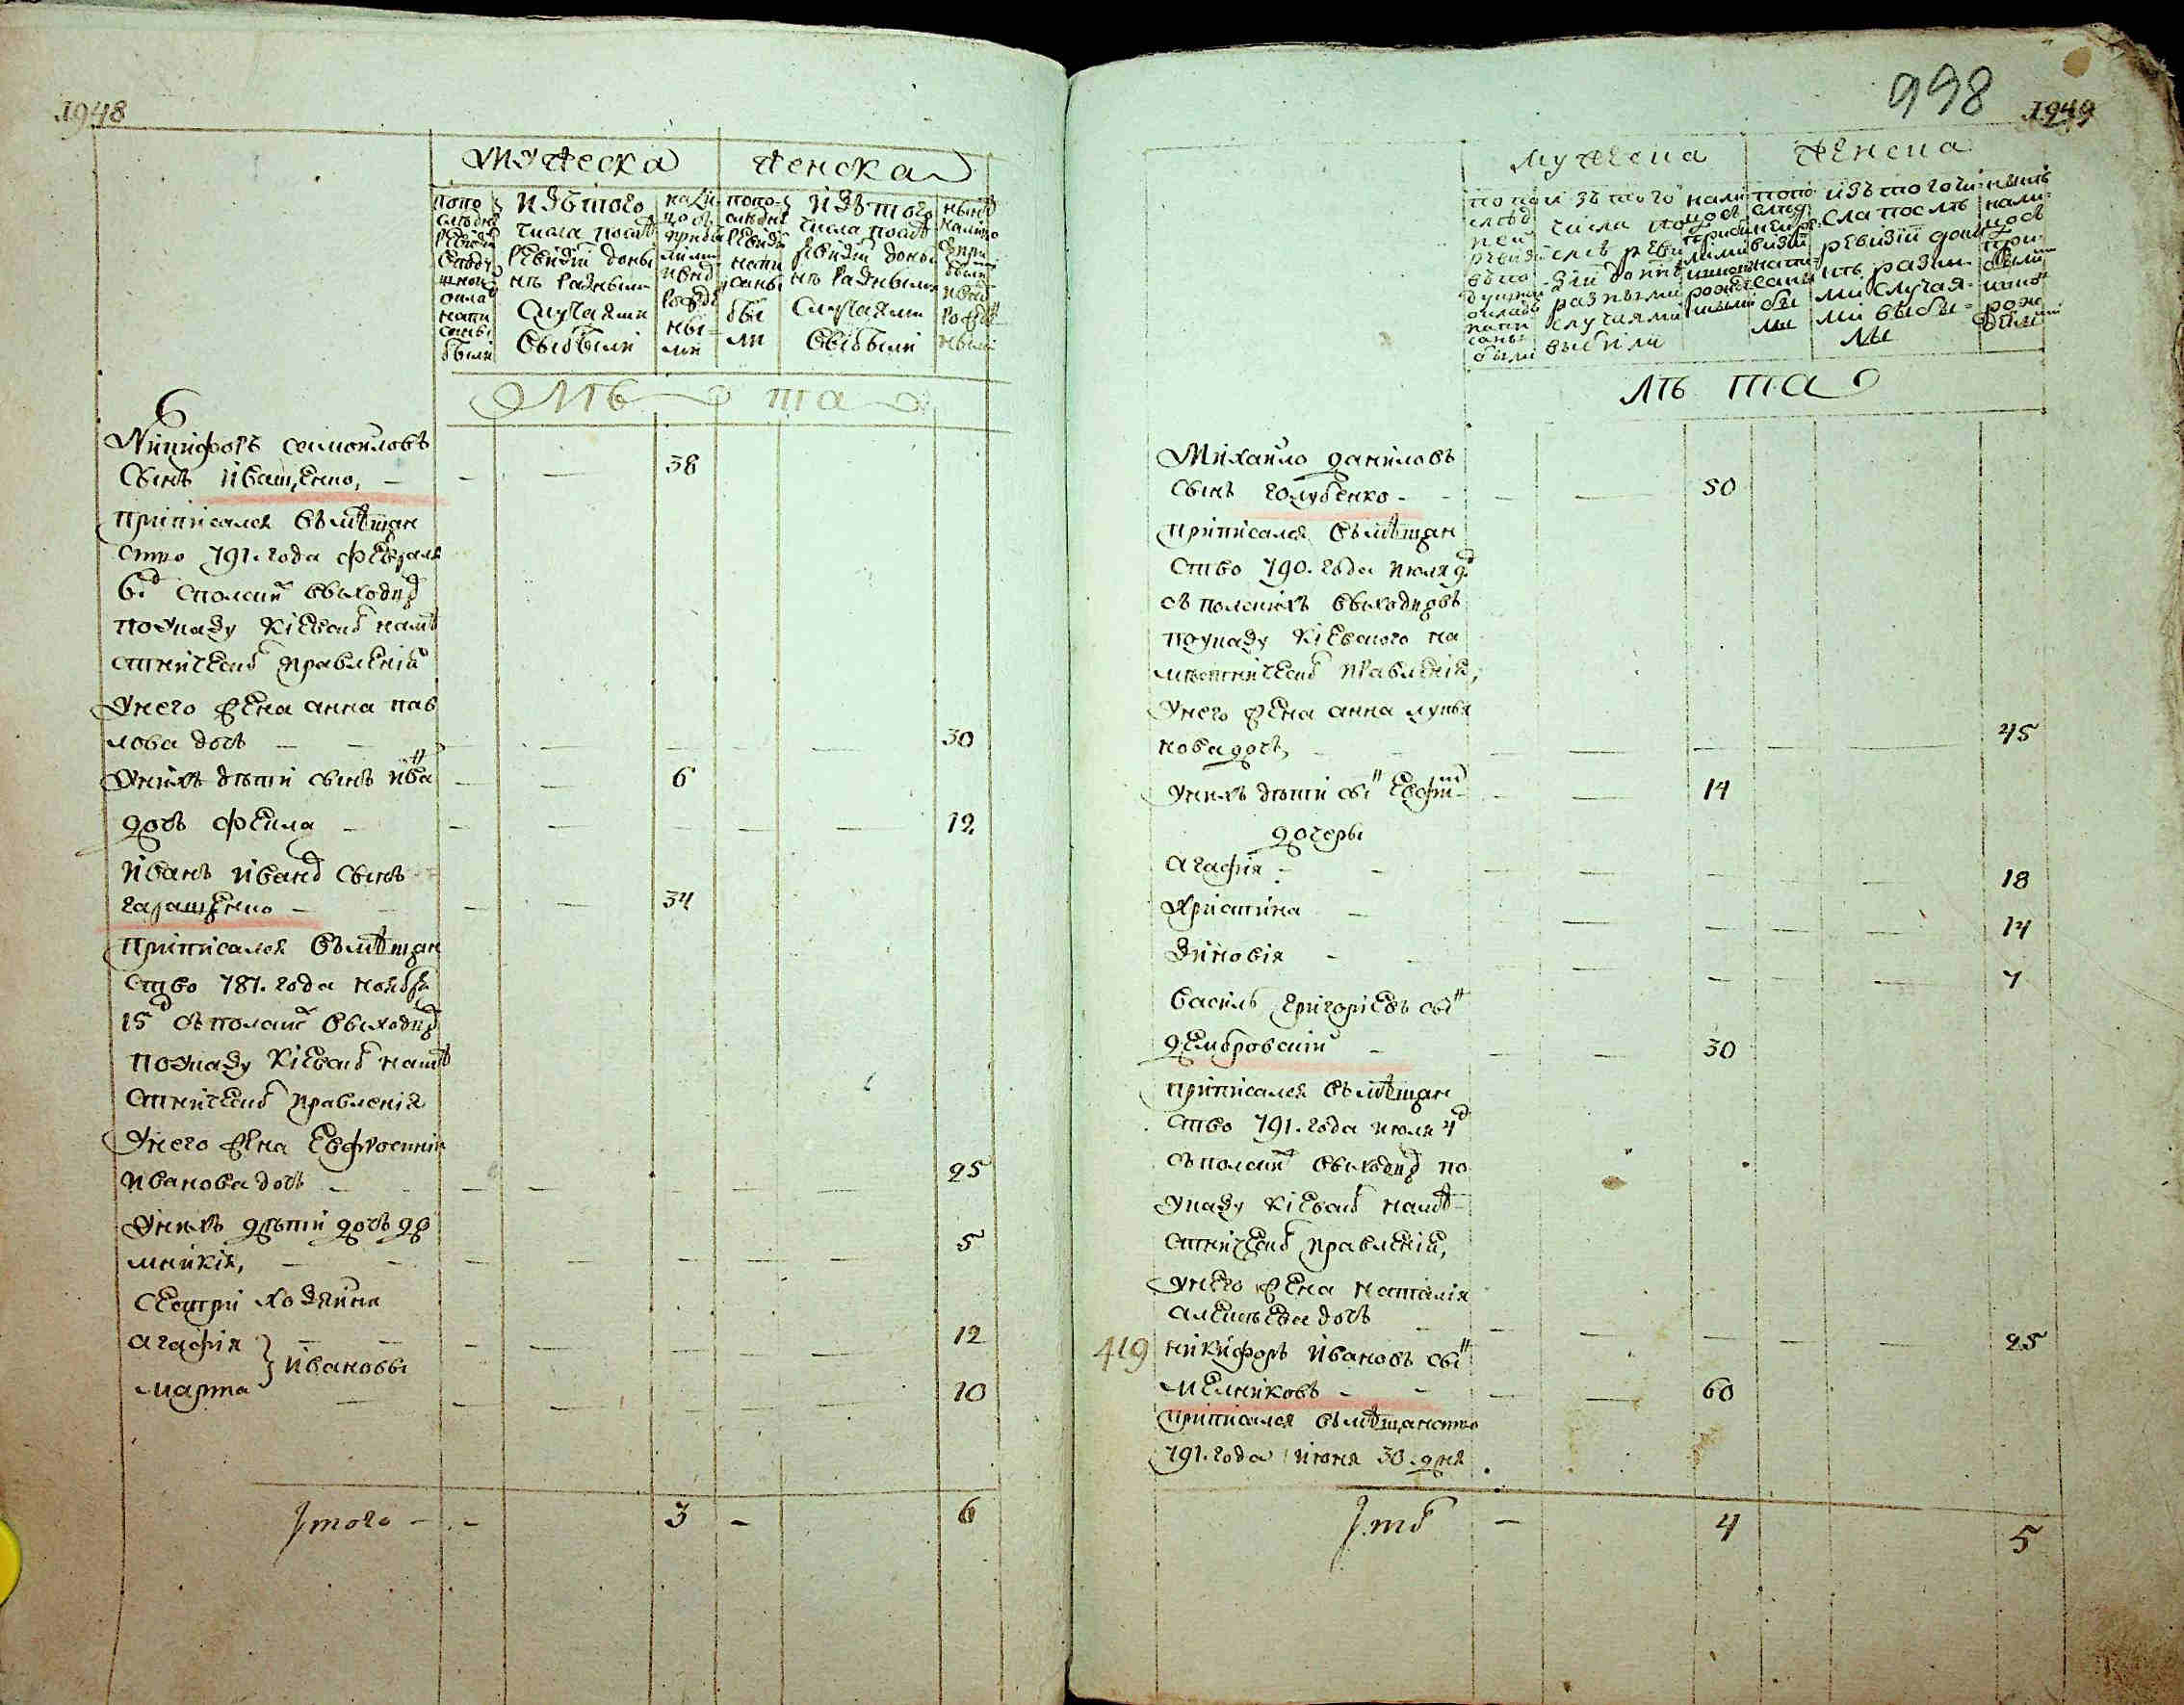 1948
мужеска женска
попо
следне
ревизіи
въ поду
шной
окладъ
напи
саны
были
изъ того
числа послѣ
ревизіи доны
нѣ разными
случаями
выбыли
попо
следне
ревизіи
напи
саны
бы
ли
изъ того
числа послѣ
ревизіи доны
нѣ разными
случаями
выбыли
лѣ та
6
Никифоръ самойловъ
сынъ иващенко, 38
приписался въ мѣщан
ство 791. года февраля
6д с полски выходцо
по указу кіевско намѣ
стническо правленій
у него жена анна пав
лова дочь 30
у нихъ дѣти сынъ ива 6
дочь фекла 12
иванъ ивано сынъ
гаращенко 34
приписался въ мѣщан
ство 787. года ноябр
15д съ полски выходцо
по указу кіевско намѣ
стническо правленія
у него жена евфросинія
иванова дочь 25
у нихъ дѣти дочь до
мникія, 5
сестри хозяина
агафія 12
ивановы
марта 10
Итого 3 6
998
1949
мужеска женска
изъ того
числа по
слѣ реви
зіи доннѣ
разными
случаями
выбыли
изъ того чи
сла послѣ
ревизіи дони
нѣ разни
ми случая
ми выбы
лы
лѣ та
Михайло даниловъ
сынъ голубенко 50
приписался въ мѣщан
ство 790. года июля 9д
съ полскихъ выходцовъ
по указу кіевского на
мѣстническо правленія,
у него жена анна лукья
нова дочь, 45
у нихъ дѣти сы евфи 14
дочеры
агафія 18
христина 14
зиновія 7
василь григоріевъ сы
домбровскій 30
приписался въ мѣщан
ство 791. года июля 4д
съ полски выходцо по
указу кіевско намѣ
стническо правленій,
у него жена наталія
алексѣева дочь 25
419 никифоръ ивановъ сы
мелниковъ 60
приписался въ мѣщанство
791. года июня 30. дня
Ито 4 5